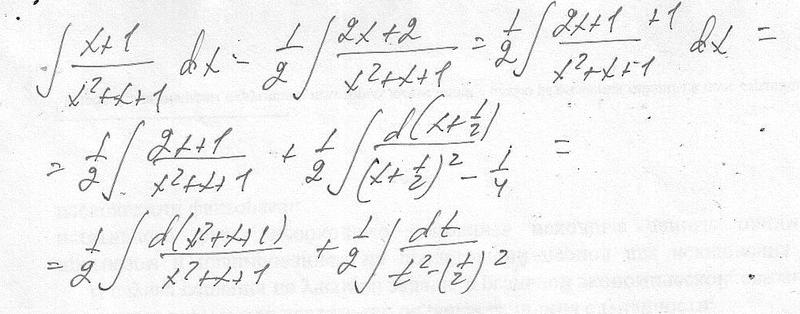 ∫ x+1 / x²+x+1 dx = 1/2 ∫ 2x+2 / x²+x+1 = 1/2 ∫ 2x+1 +1 / x²+x+1 dx =
= 1/2 ∫ 2x+1 / x²+x+1 + 1/2 ∫ d(x+1/2) / (x+1/2)² - 1/4 =
= 1/2 ∫ d(x²+x+1) / x²+x+1 + 1/2 ∫ dt / t²-(1/2)²